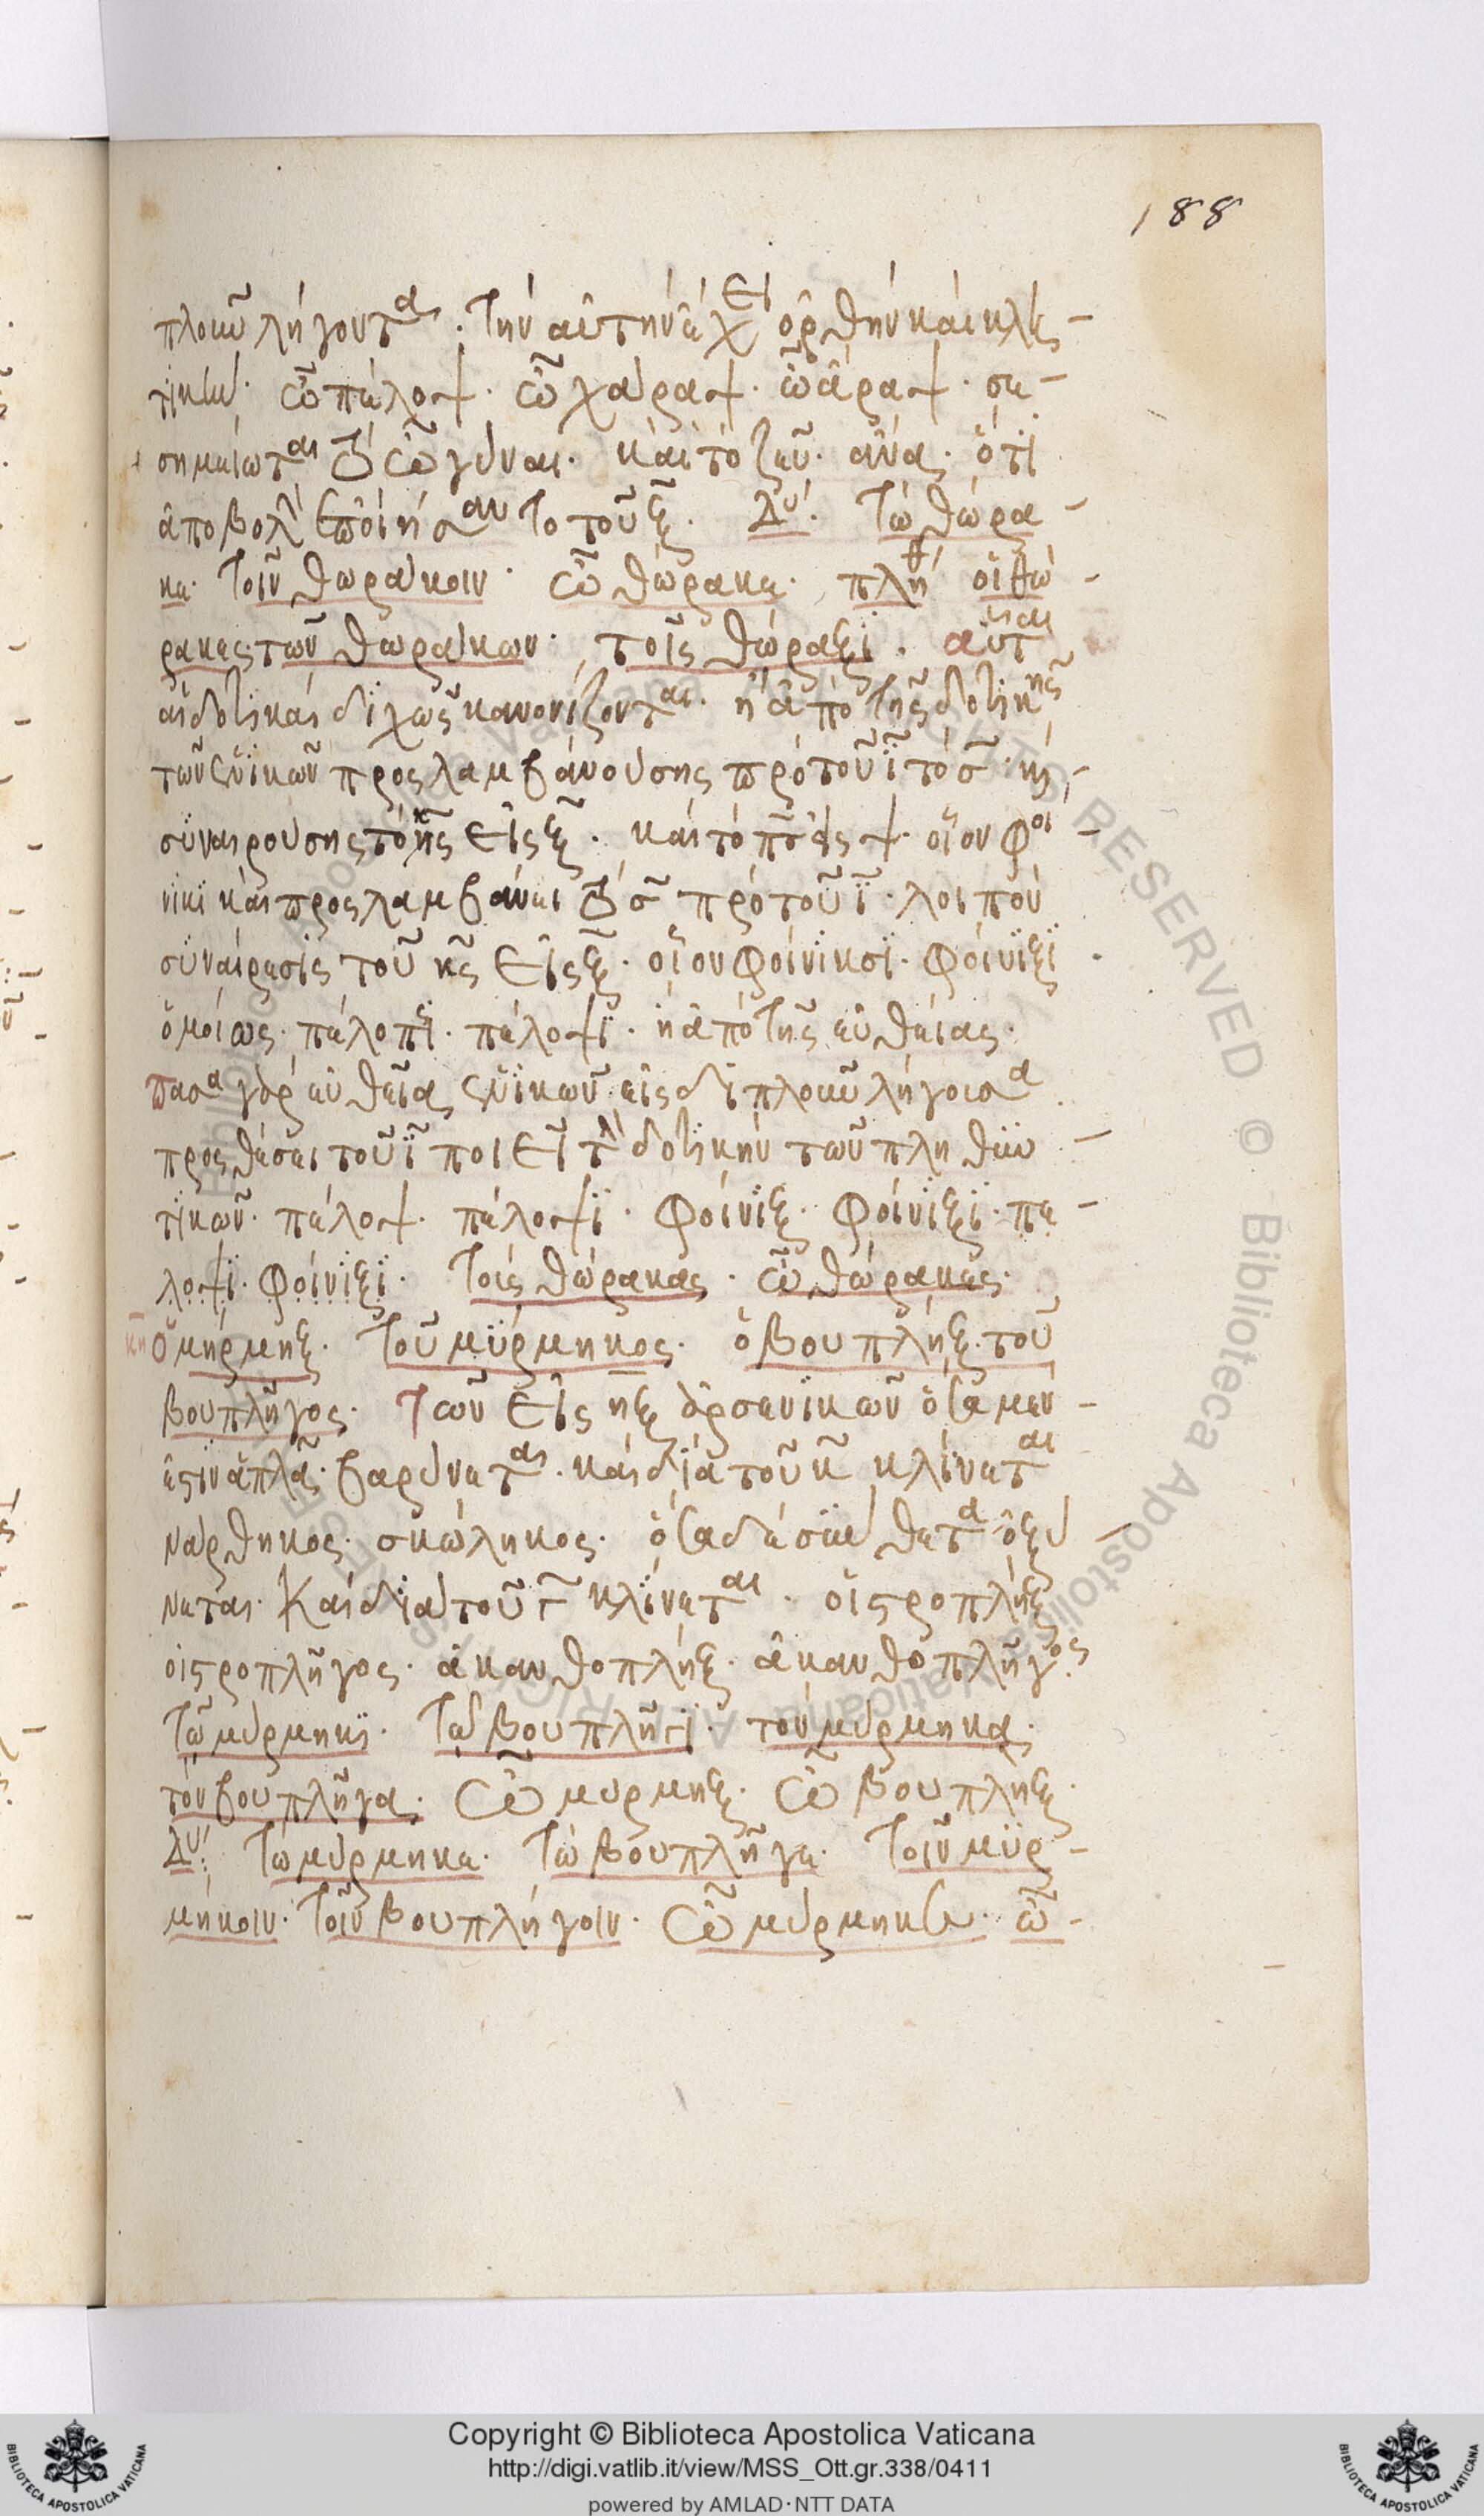 188
πλοῦν λήγουται. τὴν αὐτὴν ἔχει ὀρθὴν καὶ κλη-
τικήν. ὦ πέλοψ. ὦ χάραψ. ὦ ἄραψ. σε-
σημείωται τὸ ὦ γύναι. καὶ τὸ ζεῦ. ἄνα. ὅτι
ἀποβολὴν ἐποίησαν τὸ τοῦ ξ. Δυ. τὼ θώρα-
κε. τοῖν θωράκοιν. ὦ θώρακε. πλη οἱ θώ-
ρακες τῶν θωράκων. τοῖς θώραξι. αὗται
αἱ δοτικαὶ διχῶς κανονίζονται. ἢ ἀπὸ τῆς δοτικῆς
τῶν ἑνικῶν προσλαμβανούσης πρὸ τοῦ ι τὸ σ. κ
συναιρούσης τὸ κς εἰς ξ. καὶ τὸ πς εἰς ψ. οἷον φοί-
νικι καὶ προσλαμβάνει τὸ σ πρὸ τοῦ ι. λοιπὸν
συναίρεσις τοῦ κς εἰς ξ. οἷον φοίνικσι. φοίνιξι.
ὁμοίως. πέλοπσι. πέλοψι. ἢ ἀπὸ τῆς εὐθείας.
πᾶσα γὰρ εὐθεῖα ἑνικῶν εἰς διπλοῦν λήγουσα
προσθέσει τοῦ ι ποιεῖ τὴν δοτικὴν τῶν πληθυν-
τικῶν. πέλοψ. πέλοψι. φοίνιξ. φοίνιξι. πέ-
λοψι. φοίνιξι. τοὺς θώρακας. ὦ θώρακες.
κη ὁ μήρμηξ. τοῦ μύρμηκος. ὁ βουπλὴξ. τοῦ
βουπλῆγος. τῶν εἰς ηξ ἀρσενικῶν ὅσα μέν
ἐστιν ἁπλᾶ. βαρύνεται. καὶ διὰ τοῦ κ κλίνεται
νάρθηκος. σκώληκος. ὅσα δὲ σύνθετα ὀξύ-
νεται. καὶ διὰ τοῦ γ κλίνεται. οἰστροπλὴξ
οἰστροπλῆγος. ἀκανθοπλήξ. ἀκανθοπλῆγος
τῶ μύρμηκι. τῶ βουπλῆγι. τὸν μύρμηκα.
τὸν βουπλῆγα. ὦ μύρμηξ. ὦ βουπλὴξ.
Δυ. τὼ μύρμηκε. τὼ βουπλῆγε. τοῖν μυρ-
μήκοιν. τοῖν βουπλήγοιν. ὦ μύρμηκε. ὦ-
Copyright © Biblioteca Apostolica Vaticana
http://digi.vatlib.it/view/MSS_Ott.gr.338/0411
powered by AMLAD·NTT DATA